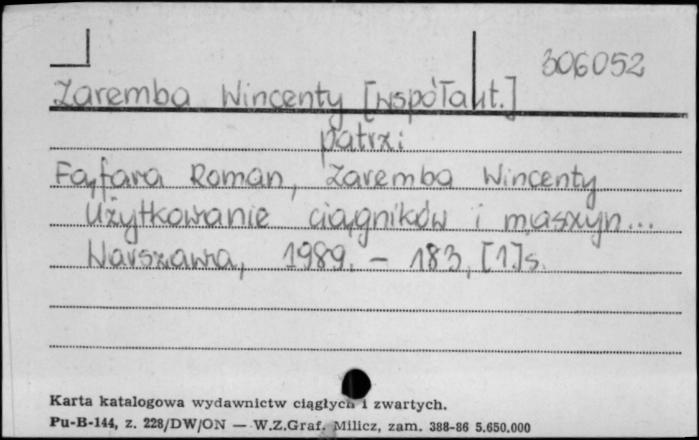 306052
Zaremba Wincenty [współaut.]
patrz:
Fajfara Roman, Zaremba Wincenty
Użytkowanie ciągników i maszyn...
Warszawa, 1989. - 183, [1]s.
Karta katalogowa wydawnictw ciągłych i zwartych.
Pu-B-144, z. 228/DW/ON — W.Z.Graf. Milicz, zam. 388-86 5.650.000